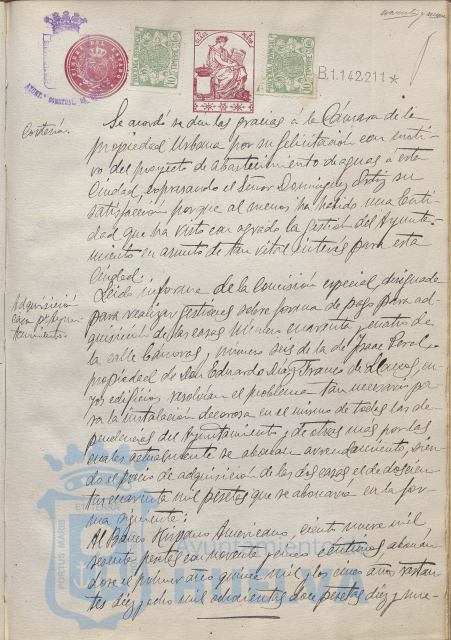 cuarenta y nueve
B.1.142.211*
Cortesía.
Se acordó se den las gracias á la Cámara de la
propiedad Urbana por su felicitación con moti-
vo del proyecto de abastecimiento de aguas á esta
Ciudad, expresando el Señor Dominguez Ortiz su
satisfacción porque al menos ha habido una Enti-
dad que ha visto con agrado la gestión del Ayunta-
miento en asunto de tan vital interés para esta
Ciudad.
Adquisición
casa pª Ayun-
tamiento.
Leido informe de la Comisión especial, designada
para realizar gestiones sobre forma de pago para ad-
quisición de las casas número cuarenta y cuatro de
la calle Cánovas, y número seis de la de Isaac Peral,
propiedad de Don Eduardo Díaz Franco de Llanos, cu-
yos edificios resolvían el problema tan necesario pa-
ra la instalación decorosa en el mismo de todas las de-
pendencias del Ayuntamiento y de otras más por las
cuales actualmente se abonan arrendamiento, sien-
do el precio de adquisición de las dos casas el de doscien-
tas cuarenta mil pesetas que se abonaría en la for-
ma siguiente:
Al Banco Hispano Americano, ciento nueve mil
sesenta pesetas con noventa y cinco centimos, abonan-
dose el primer año quince mil y los cinco años restan-
tes diez y ocho mil ochocientas doce pesetas diez y nue-
PORTUS MARIS
Ayuntamiento
HUELVA